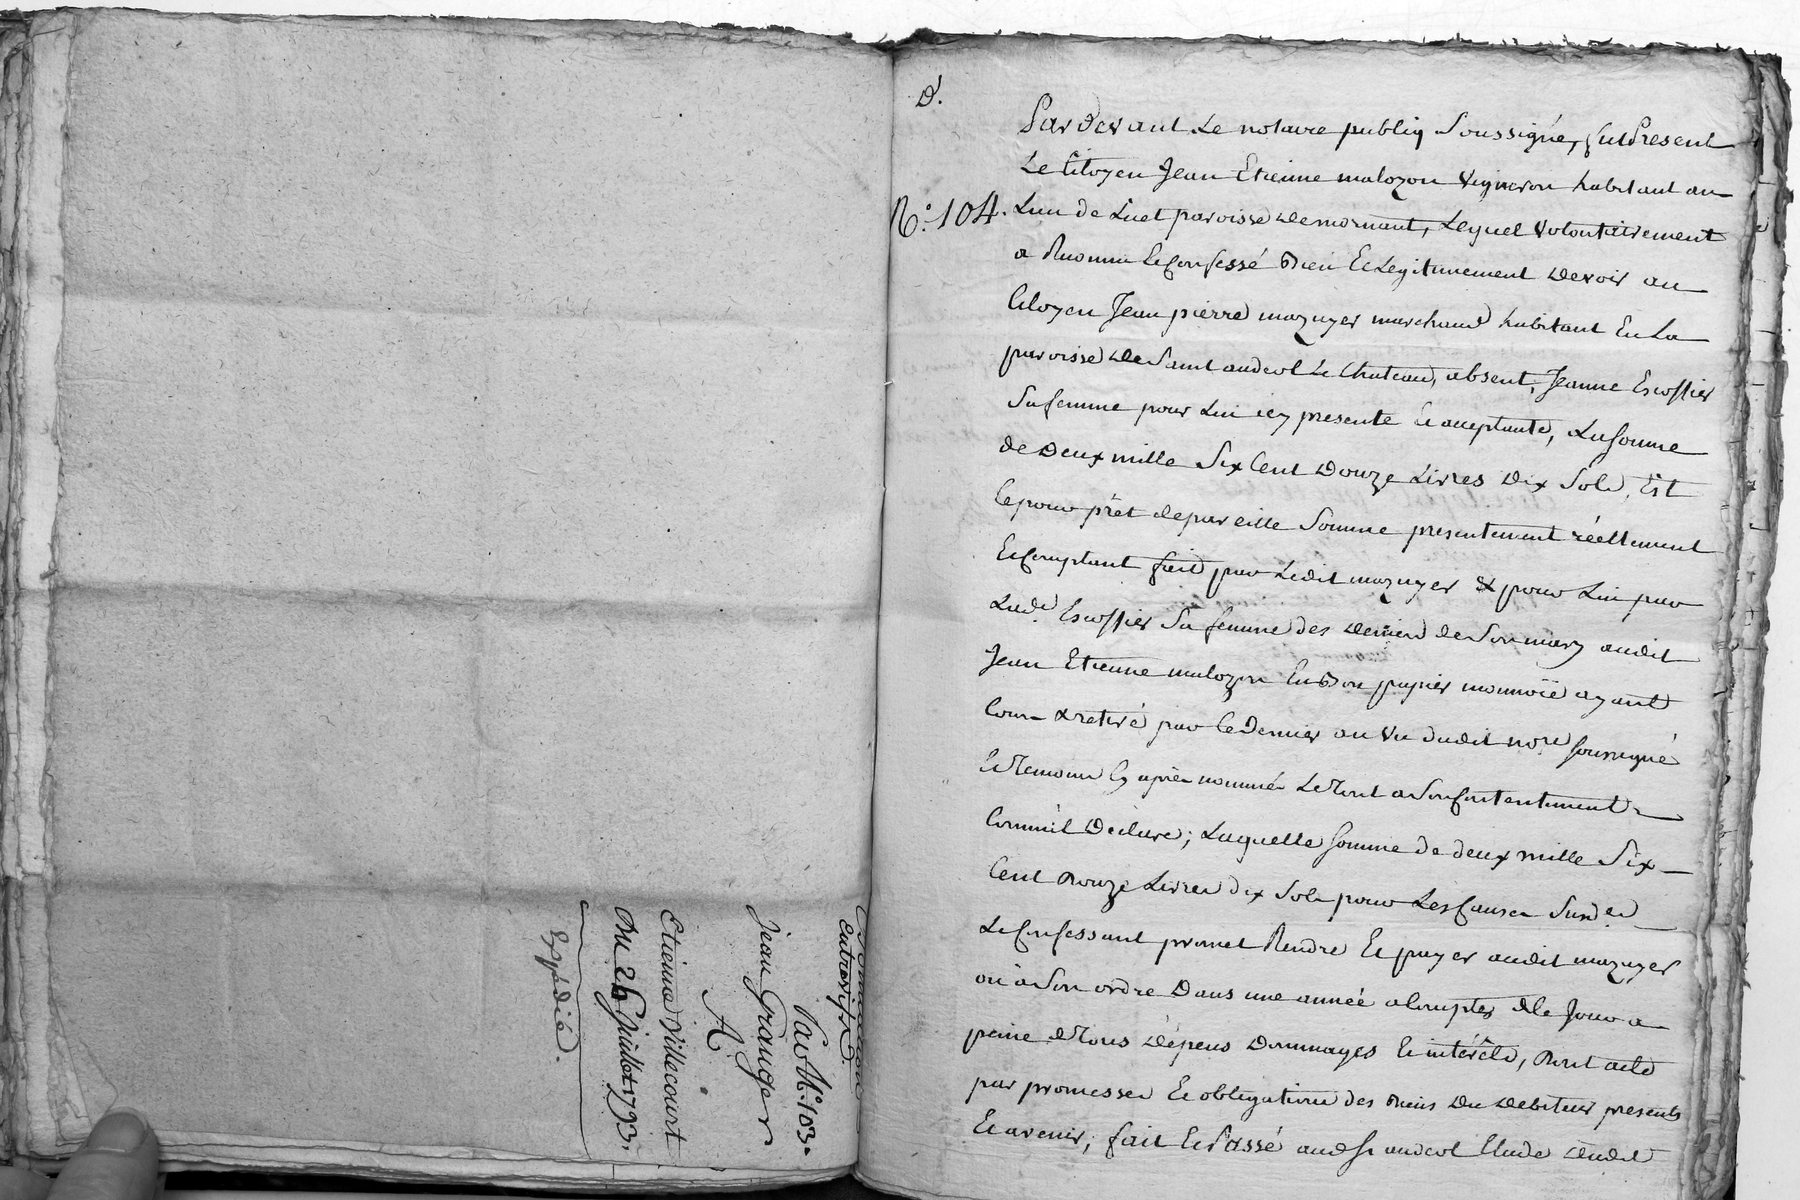 entre vifs
Par No. 103.
Jean Granger
A.
Etienne Villecourt
Du 26 Juillet 1793.
Expédié.
D.
No. 104.
Pardevant Le notaire public Soussigné, fut Present
Le Citoyen Jean Etienne malozon Vigneron habitant au
Lieu de Luet paroisse de mornant, Lequel Volontairement
a Reconnu et Confessé Bien et Legitimement Devoir au
Citoyen Jean pierre mazuyer marchand habitant En La
paroisse de Saint andeol Le Chateau, absent, Jeanne Escoffier
Sa femme pour Lui icy presente et acceptante, La Somme
de Deux mille Six Cent Douze Livres Dix Sols, Et
Ce pour prêt de pareille Somme presentement réellement
Et Comptant fait par Ledit mazuyer & pour Lui par
Lade. Escoffier Sa femme des deniers de Son mary audit
Jean Etienne malozon En Bon papier monnoie ayant
Cours & retiré par Ce Dernier au Vu dudit nore. Soussigné
Et Temoins Cy après nommés Le Tout a Son Contentement
Comm'il Declare; Laquelle Somme de deux mille Six
Cent Douze Livres dix Sols pour Les Causes Susdes.
Le Confessant promet Rendre Et payer audit mazuyer
ou à Son ordre Dans une année a Compter de Ce Jour a
peine de Tous Dépens Dommages Et intérêts, Dont acte
par promesses Et obligations des Biens Du Debiteur presents
Et avenir, fait Et Passé aud. St andeol Etude dudit